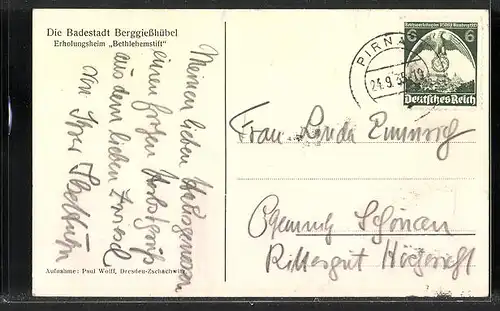 Die Badestadt Berggießhübel
Erholungsheim „Bethlehemstift“
Meinen lieben Hausgenossen
einen frohen Herbstgruß
aus dem lieben
von Ihrer
Aufnahme: Paul Wolff, Dresden-Zschachwitz
PIRNA
24.9.35
6 6
Deutsches Reich
Frau Linda Emmrich
Chemnitz Schönau
Rittergut Höckericht